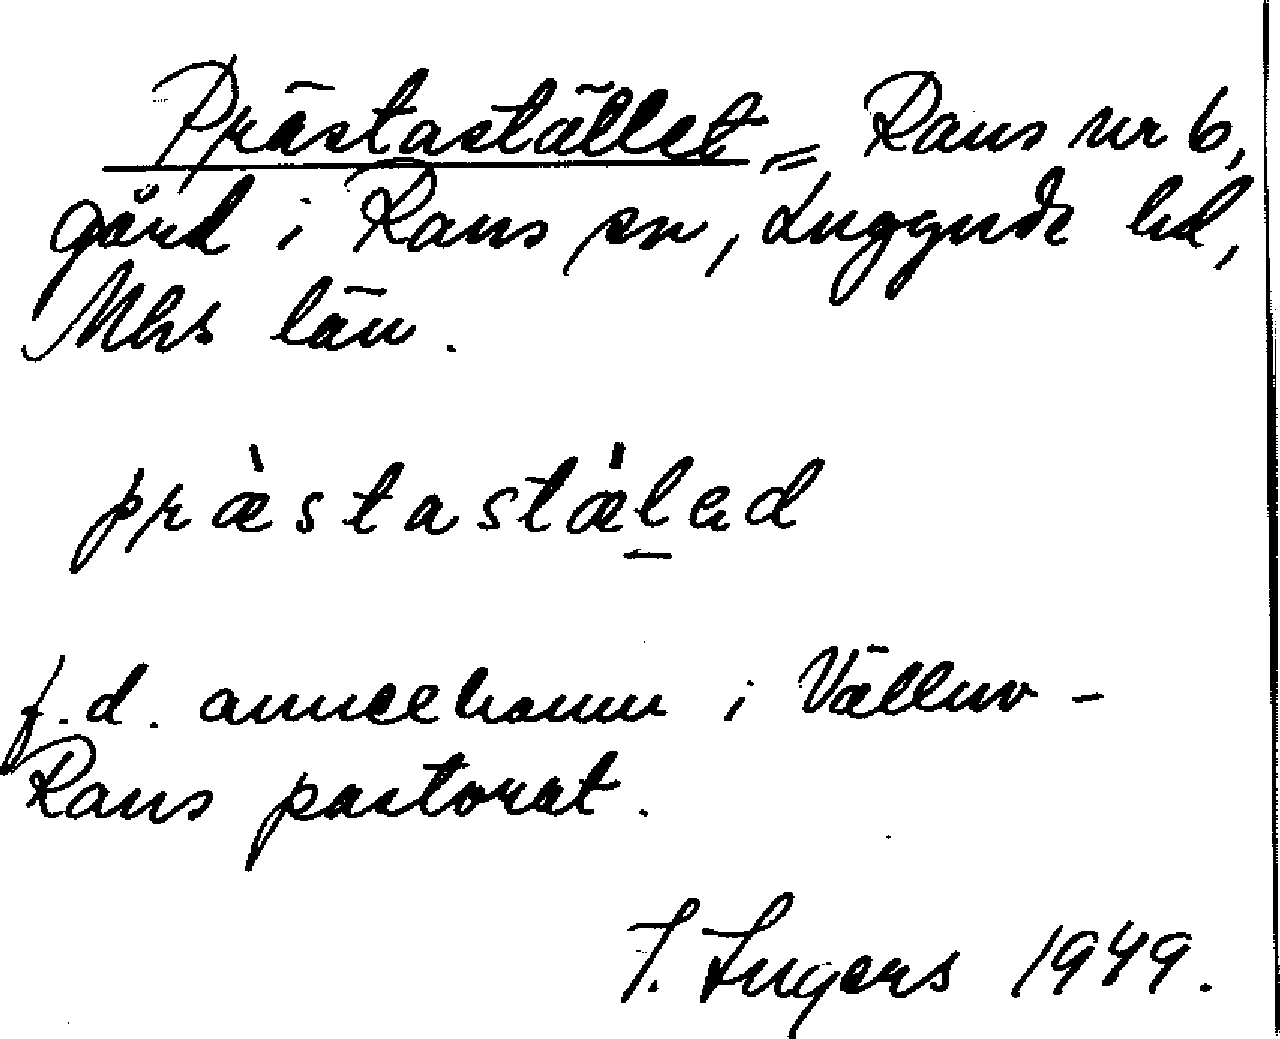 Prästastället = Raus nr 6,
gård i Raus sn, Luggude hd,
Mhs län.
præ̀stastæ̍l̲ad
f.d. annexhemm i Välluv-
Raus pastorat.
I. Ingers 1949.